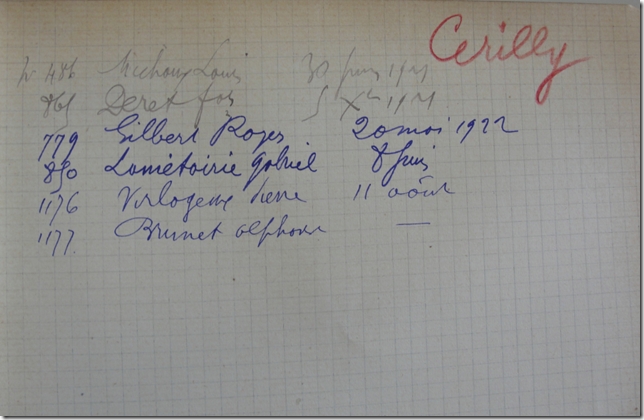 Cerilly
N 486 Michoux Louis 30 Juin 1921
865 Deret fois 5 Xbre 1921
779 Gilbert Roger 20 mai 1922
890 Lamétairie Gabriel 8 Juin
1176 Virlogeux Pierre 11 août
1177 Brunet alphonse —